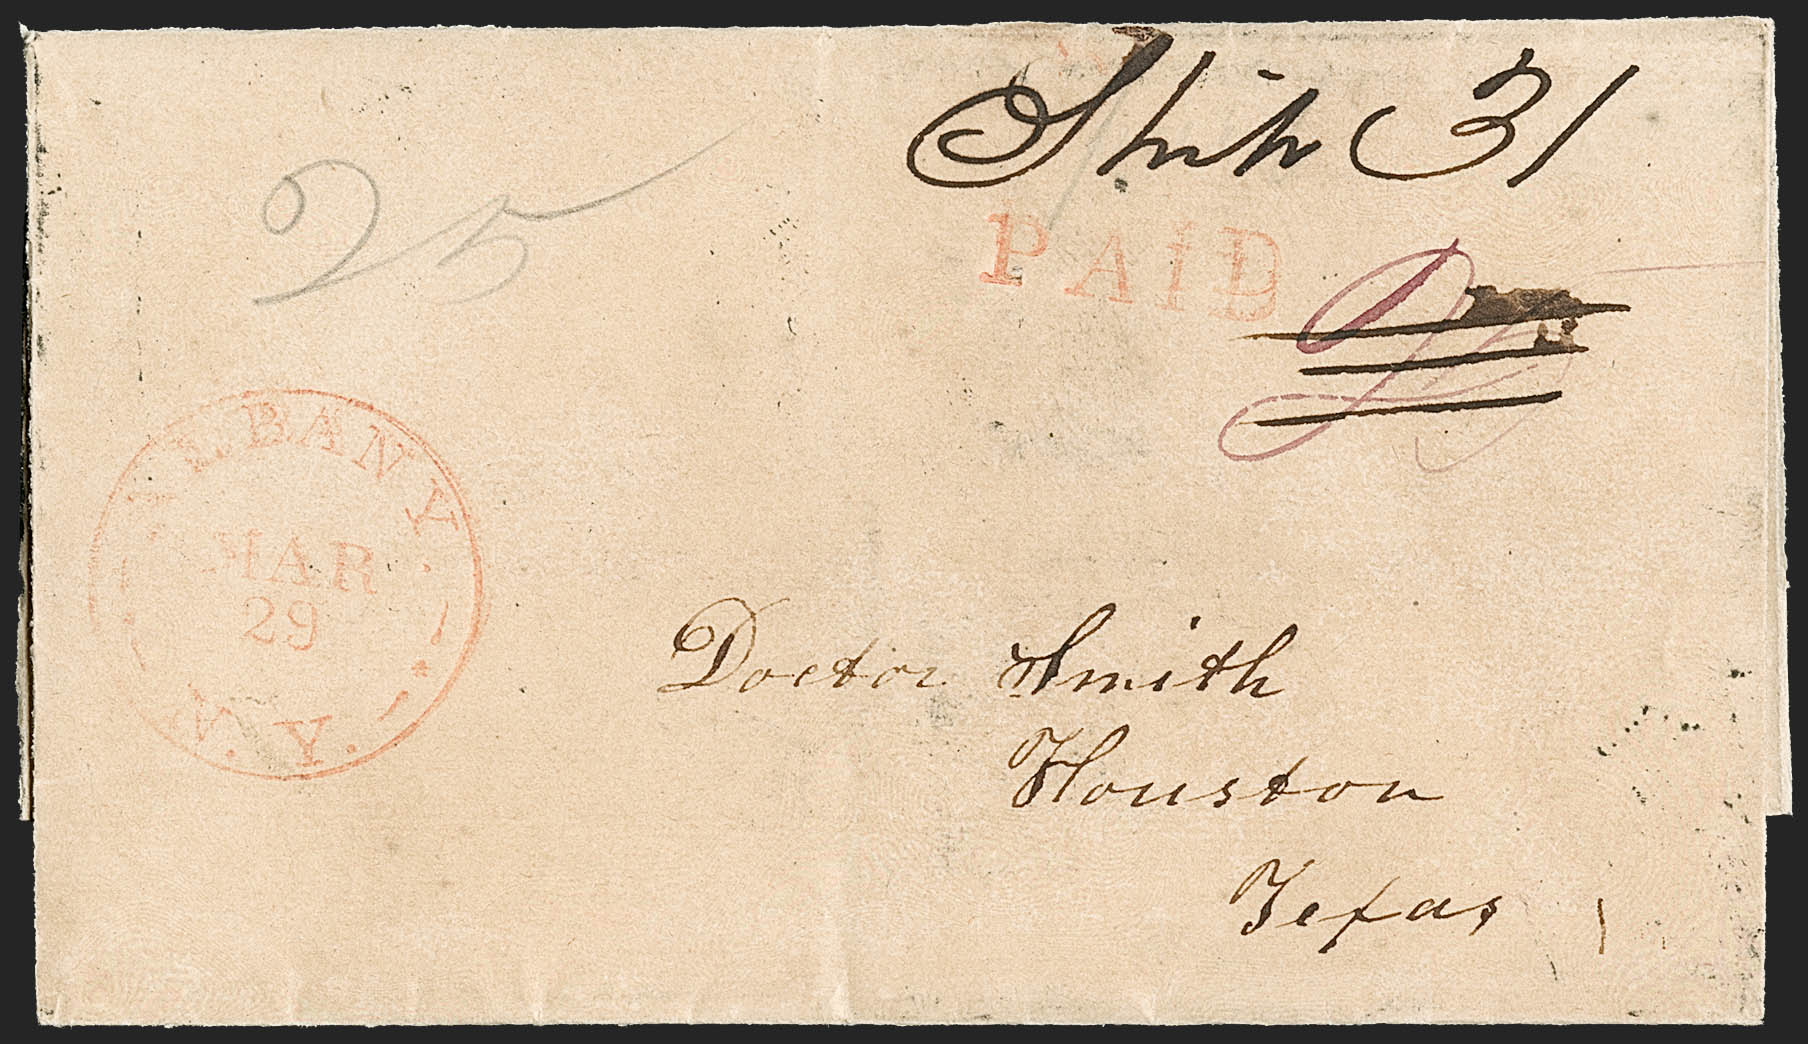 Ship 31
25
PAID
25
ALBANY
MAR
29
N.Y.
Doctor Smith
Houston
Texas